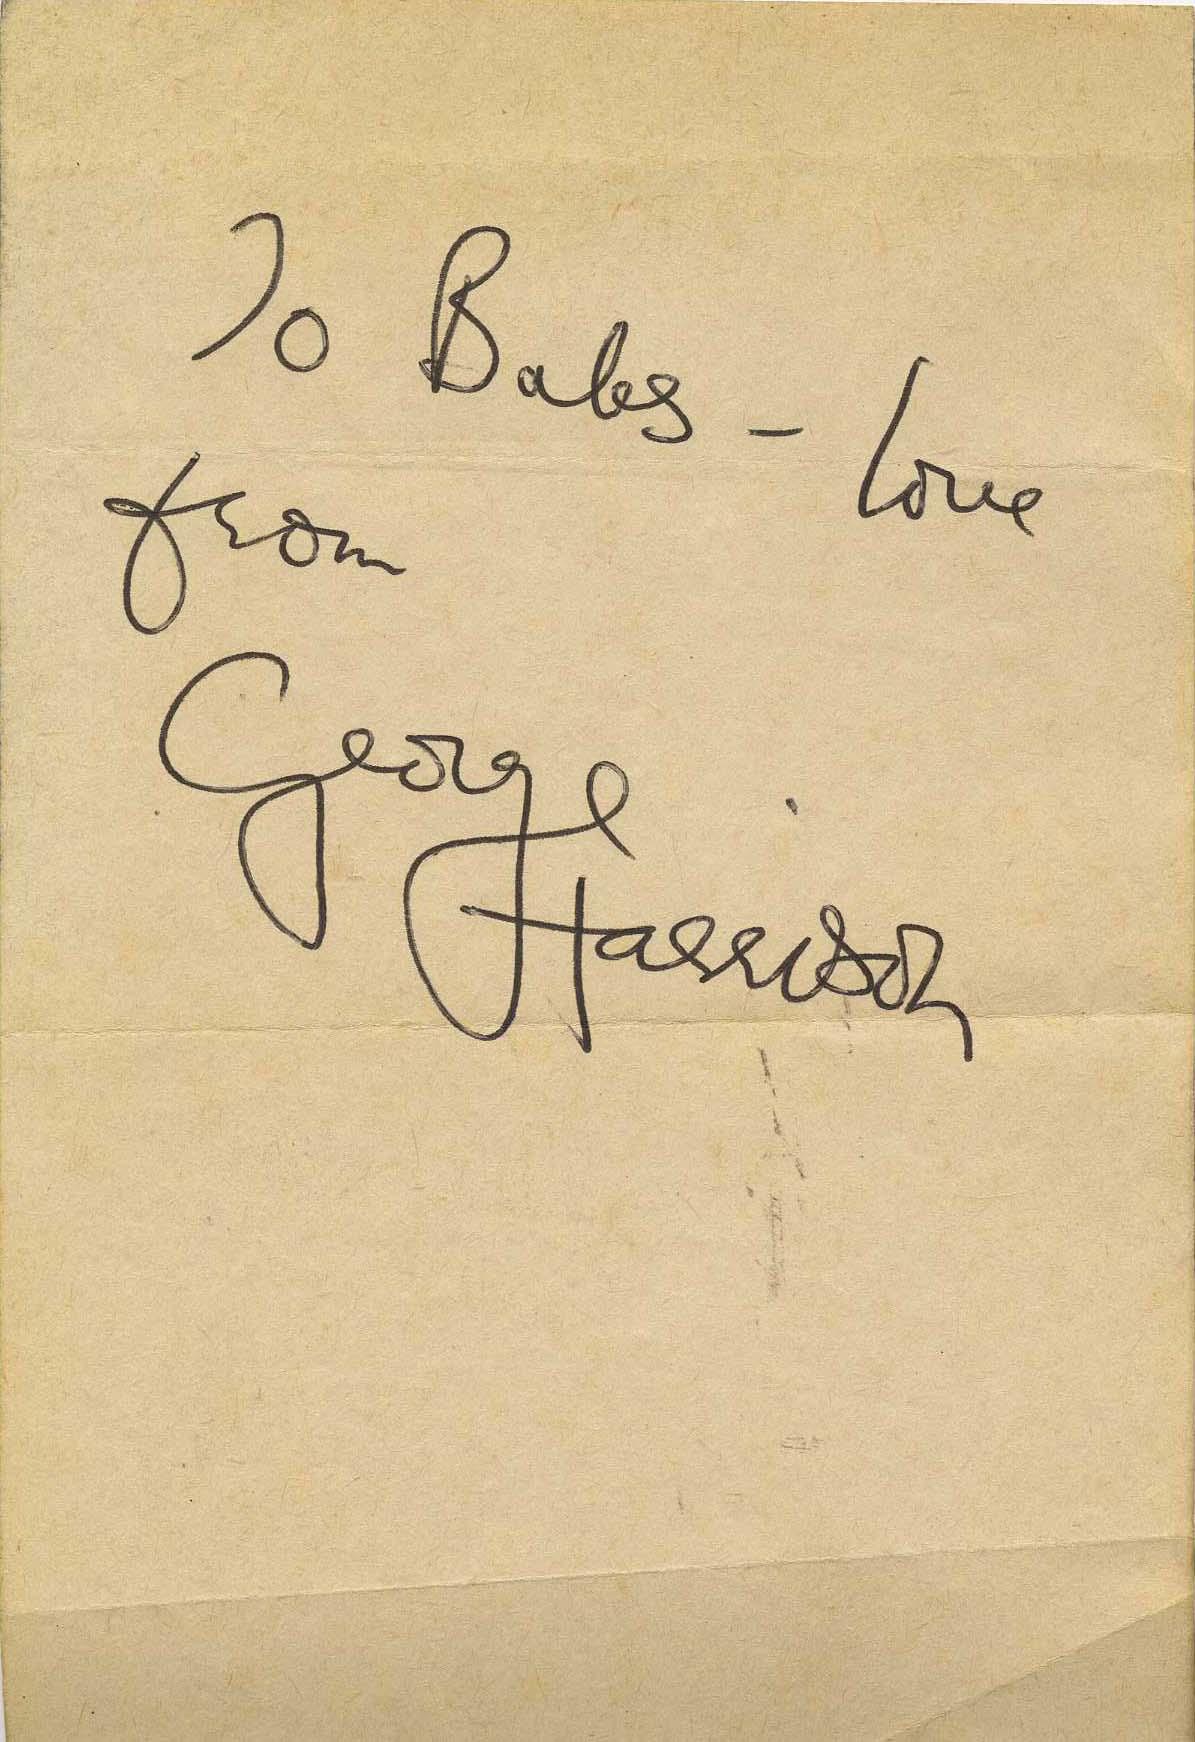 To Babs - love
from
George
Harrison